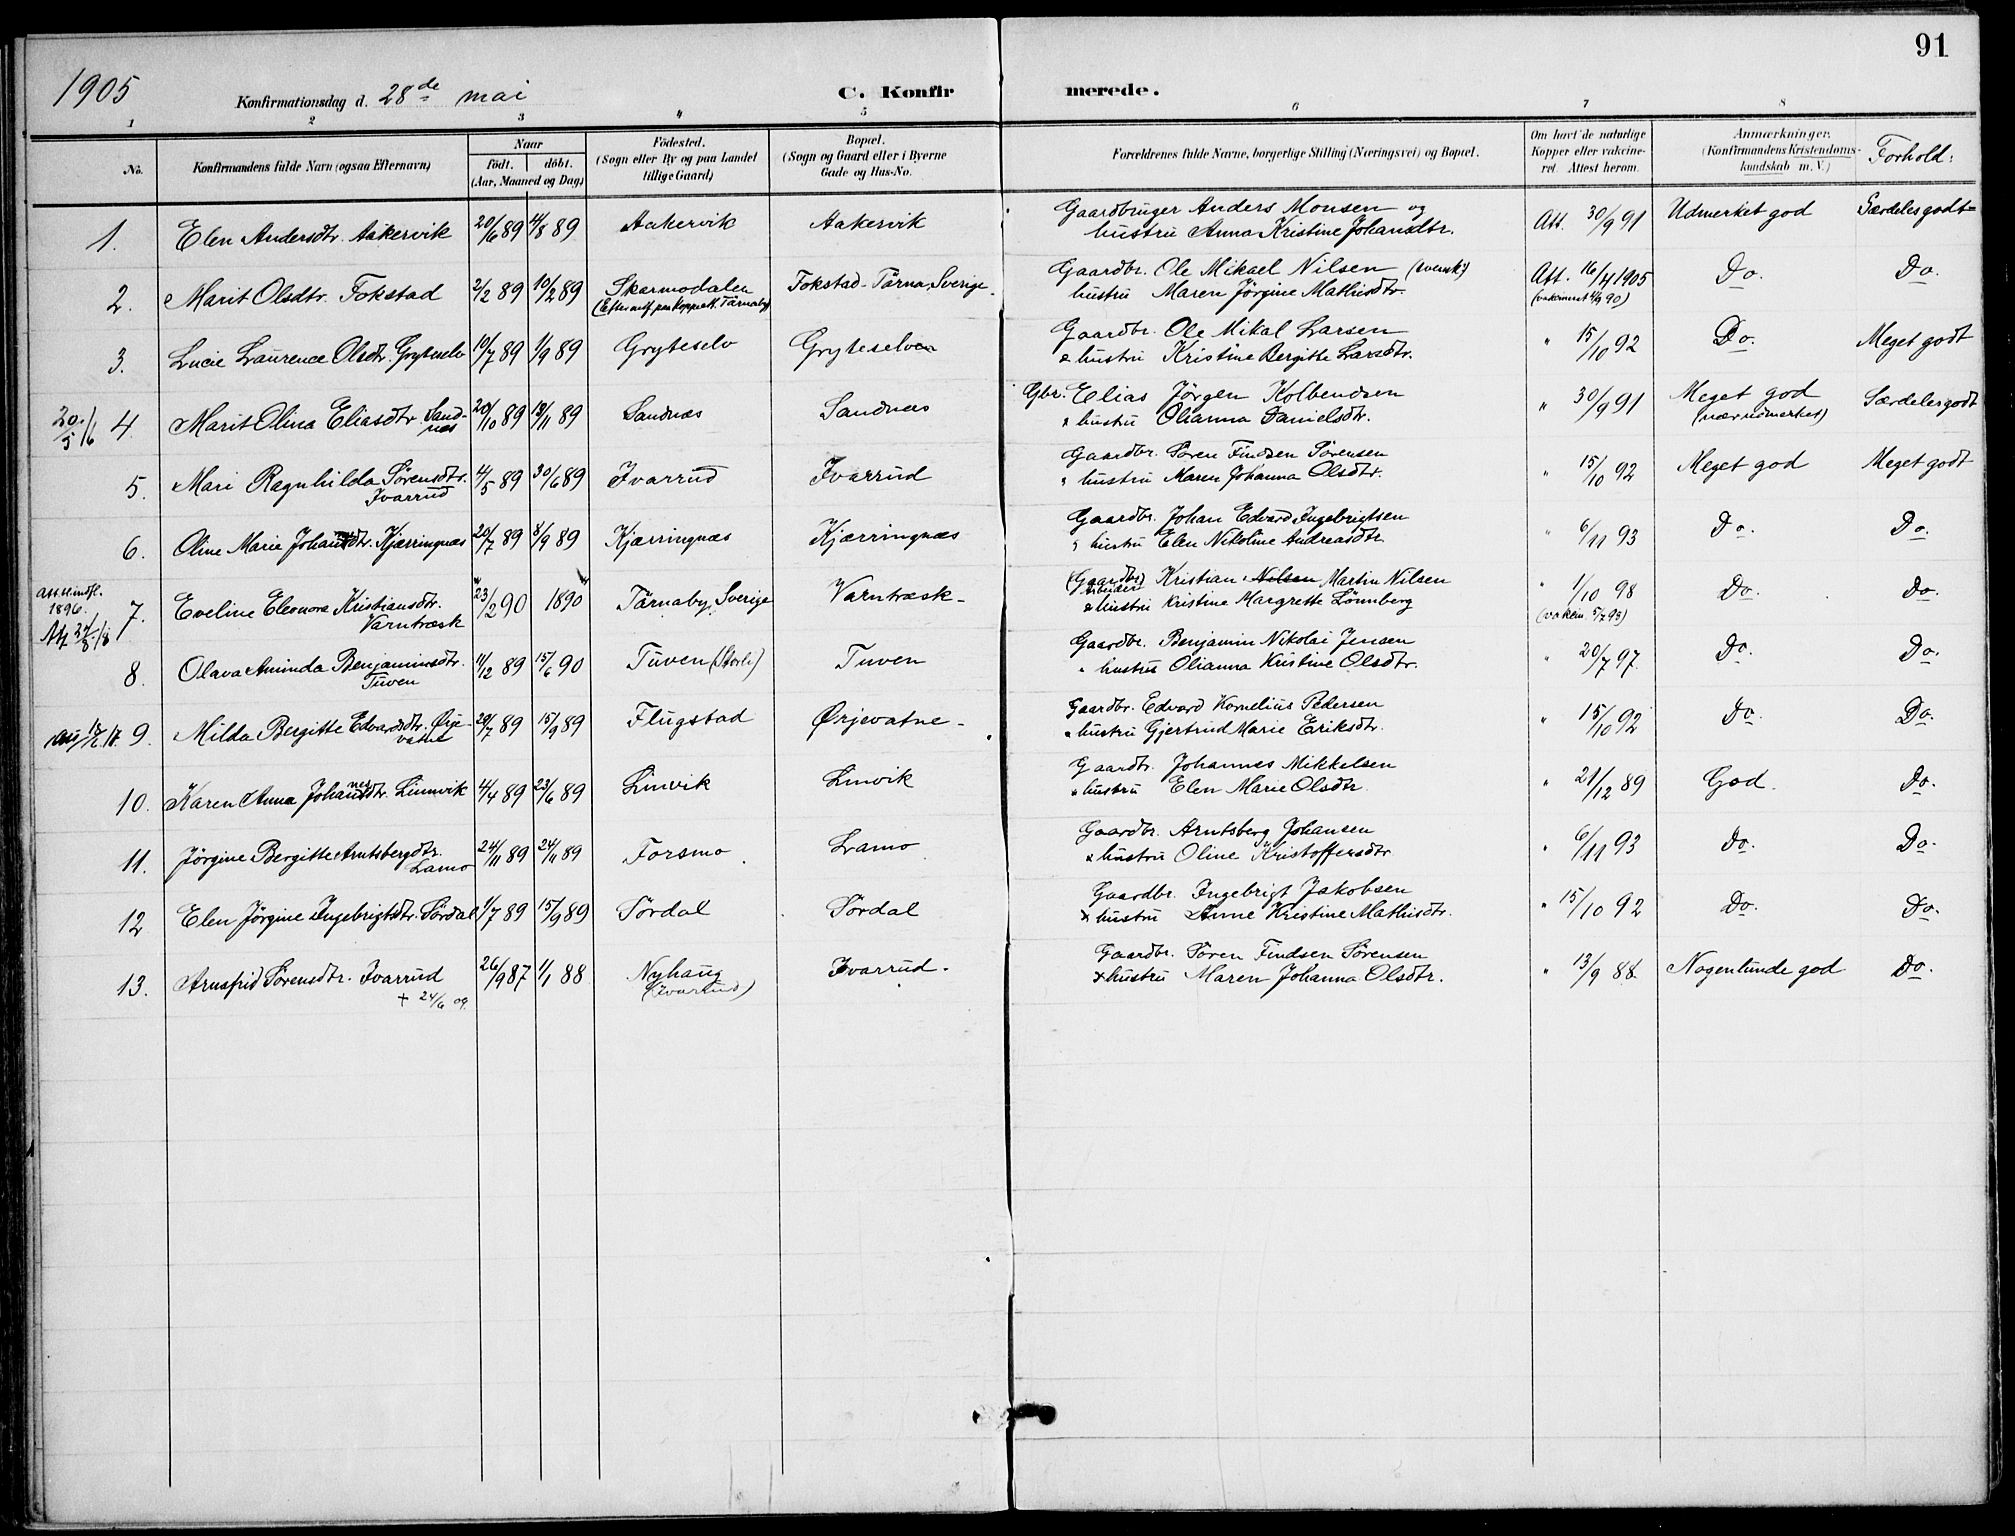 91
1905 Konfirmationsdag d. 28de mai C. Konfirmerede.
1 2 3 4 5 6 7 8
No.
Konfirmandens fulde Navn (ogsaa Efternavn)
Naar
födt. döbt.
(Aar, Maaned og Dag)
Födested.
(Sogn eller By og paa Landet
tillige Gaard)
Bopæl.
(Sogn og Gaard eller i Byerne
Gade og Hus-No.
Forældrenes fulde Navne, borgerlige Stilling (Næringsvei) og Bopæl.
Om havt de naturlige
Kopper eller vaccine-
ret. Attest herom.
Anmærkninger.
(Konfirmandens Kristendoms-
kundskab m. V.)
Forhold:
1. Elen Andersdtr. Aakervik 20/6 89 4/8 89 Aakervik Aakervik Gaardbruger Anders Monsen og
hustru Anna Kristine Johansdtr. Att. 30/9 91 Udmerket god Særdeles godt
2. Marit Olsdtr. Fokstad 2/2 89 10/2 89 Skarmodalen Fokstad - Tärna, Sverige. Gaardbr. Ole Mikael Nilsen (svensk)
hustru Maren Jörgine Mathisdtr. Att. 16/4 1905 Do. Do.
3. Lucie Laurence Olsdtr. Grytselv 10/7 89 1/9 89 Gryteselv Gryteselven Gaardbr. Ole Mikal Larsen
& hustru Kristine Bergitte Larsdtr. " 15/10 92 Do. Meget godt
20/5 16 4. Marit Olina Eliasdtr. Sand-
næs 20/10 89 18/11 89 Sandnæs Sandnæs Gbr. Elias Jörgen Kolbendsen
& hustru Olianna Danielsdtr. " 30/9 91 Meget god
(nær udmerket) Særdeles godt
5. Mari Ragnhilda Sörensdtr.
Ivarrud 4/5 89 30/6 89 Ivarrud Ivarrud Gaardbr. Sören Findsen Sörensen
& hustru Maren Johanna Olsdtr. " 15/10 92 Meget god Meget godt
6. Oline Marie Johansdtr. Kjærringnæs 20/7 89 8/9 89 Kjærringnæs Kjærringnæs Gaardbr. Johan Edvard Ingebrigtsen
& hustru Elen Nikoline Andreasdtr. " 6/11 93 Do. Do.
1896.
7. Eveline Eleonora Kristiansdtr.
Varntræsk 23/2 90 1890 Tärnaby, Sverige Varntræsk - (Gaardbr) Kristian Nilsen Martin Nilsen
& hustru Kristine Margrette Lönnberg " 1/10 98 Do. Do.
8. Olava Aminda Benjaminsdtr.
Tuven 11/12 89 15/6 90 Tuven (Storli) Tuven Gaardbr. Benjamin Nikolai Jensen
" hustru Olianna Kristine Olsdtr. " 20/7 97. Do. Do.
9. Milda Bergitte Edvardsdtr. Örje-
vatne 29/7 89 15/9 89 Flugstad Ørjevatne - Gaardbr. Edvard Kornelius Pedersen
& hustru Gjertrud Marie Eriksdtr. " 15/10 92 Do. Do.
10. Karen Anna Johannesdtr. Linnvik 4/4 89 23/6 89 Linvik Linvik Gaardbr. Johannes Mikkelsen
& hustru Elen Marie Olsdtr. " 21/12 89 God. Do.
11. Jörgine Bergitte Arntsbergdtr.
Lamo 24/11 89 24/11 89 Forsmo Lramo Gaardbr. Arntsberg Johansen
& hustru Oline Kristoffersdtr. " 6/11 93 Do. Do.
12 Elen Jörgine Ingebrigtsdtr. Sördal 1/7 89 15/9 89 Sördal Sördal Gaardbr. Ingebrigt Jakobsen
& hustru Anne Kristine Mathisdtr. " 15/10 92 Do. Do.
13. Arnsfrid Sörensdtr. Ivarrud
+ 24/6 09. 26/9 87 1/1 88 Nyhaug
(Ivarrud) Ivarrud. Gaardbr. Sören Findsen Sörensen
& hustru Maren Johanna Olsdtr. " 13/9 88. Nogenlunde god Do.